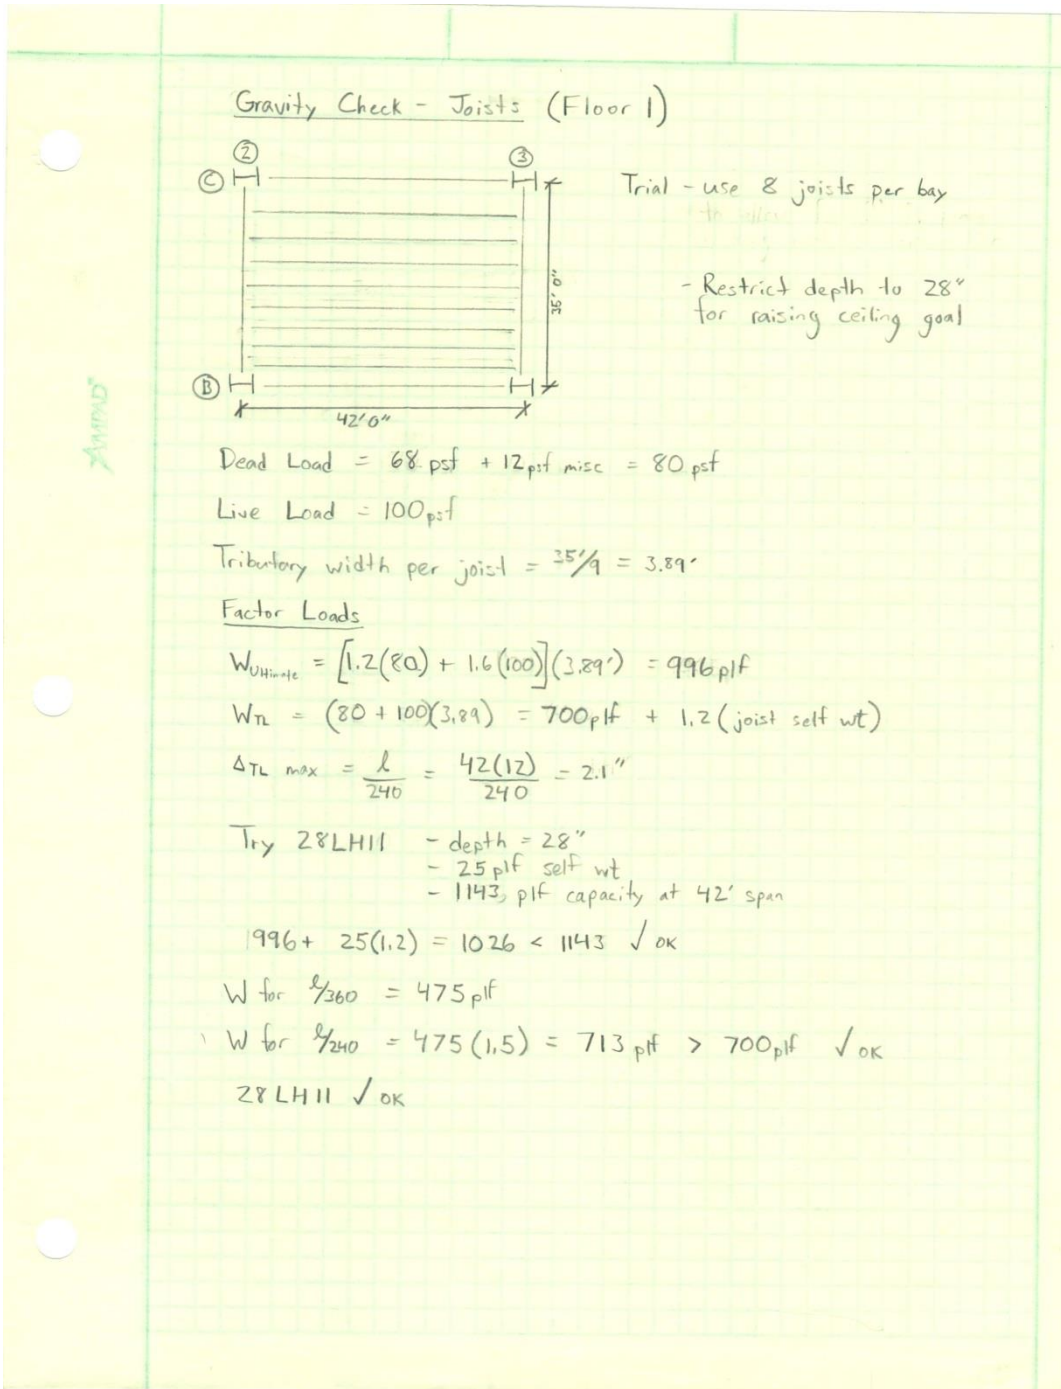 Gravity Check - Joists (Floor 1)
2
3
C
Trial - use 8 joists per bay
- Restrict depth to 28"
for raising ceiling goal
35' 0"
B
42' 0"
AMPAD
Dead Load = 68 psf + 12 psf misc = 80 psf
Live Load = 100 psf
Tributory width per joist = 35'/9 = 3.89'
Factor Loads
WUltimate = [1.2(80) + 1.6(100)](3.89') = 996 plf
WTL = (80 + 100)(3.89) = 700 plf + 1.2 (joist self wt)
ΔTL max = l/240 = 42(12)/240 = 2.1"
Try 28LH11 - depth = 28"
- 25 plf self wt
- 1143 plf capacity at 42' span
996 + 25(1.2) = 1026 < 1143 ✓ OK
W for l/360 = 475 plf
W for l/240 = 475(1.5) = 713 plf > 700 plf ✓ OK
28LH11 ✓ OK